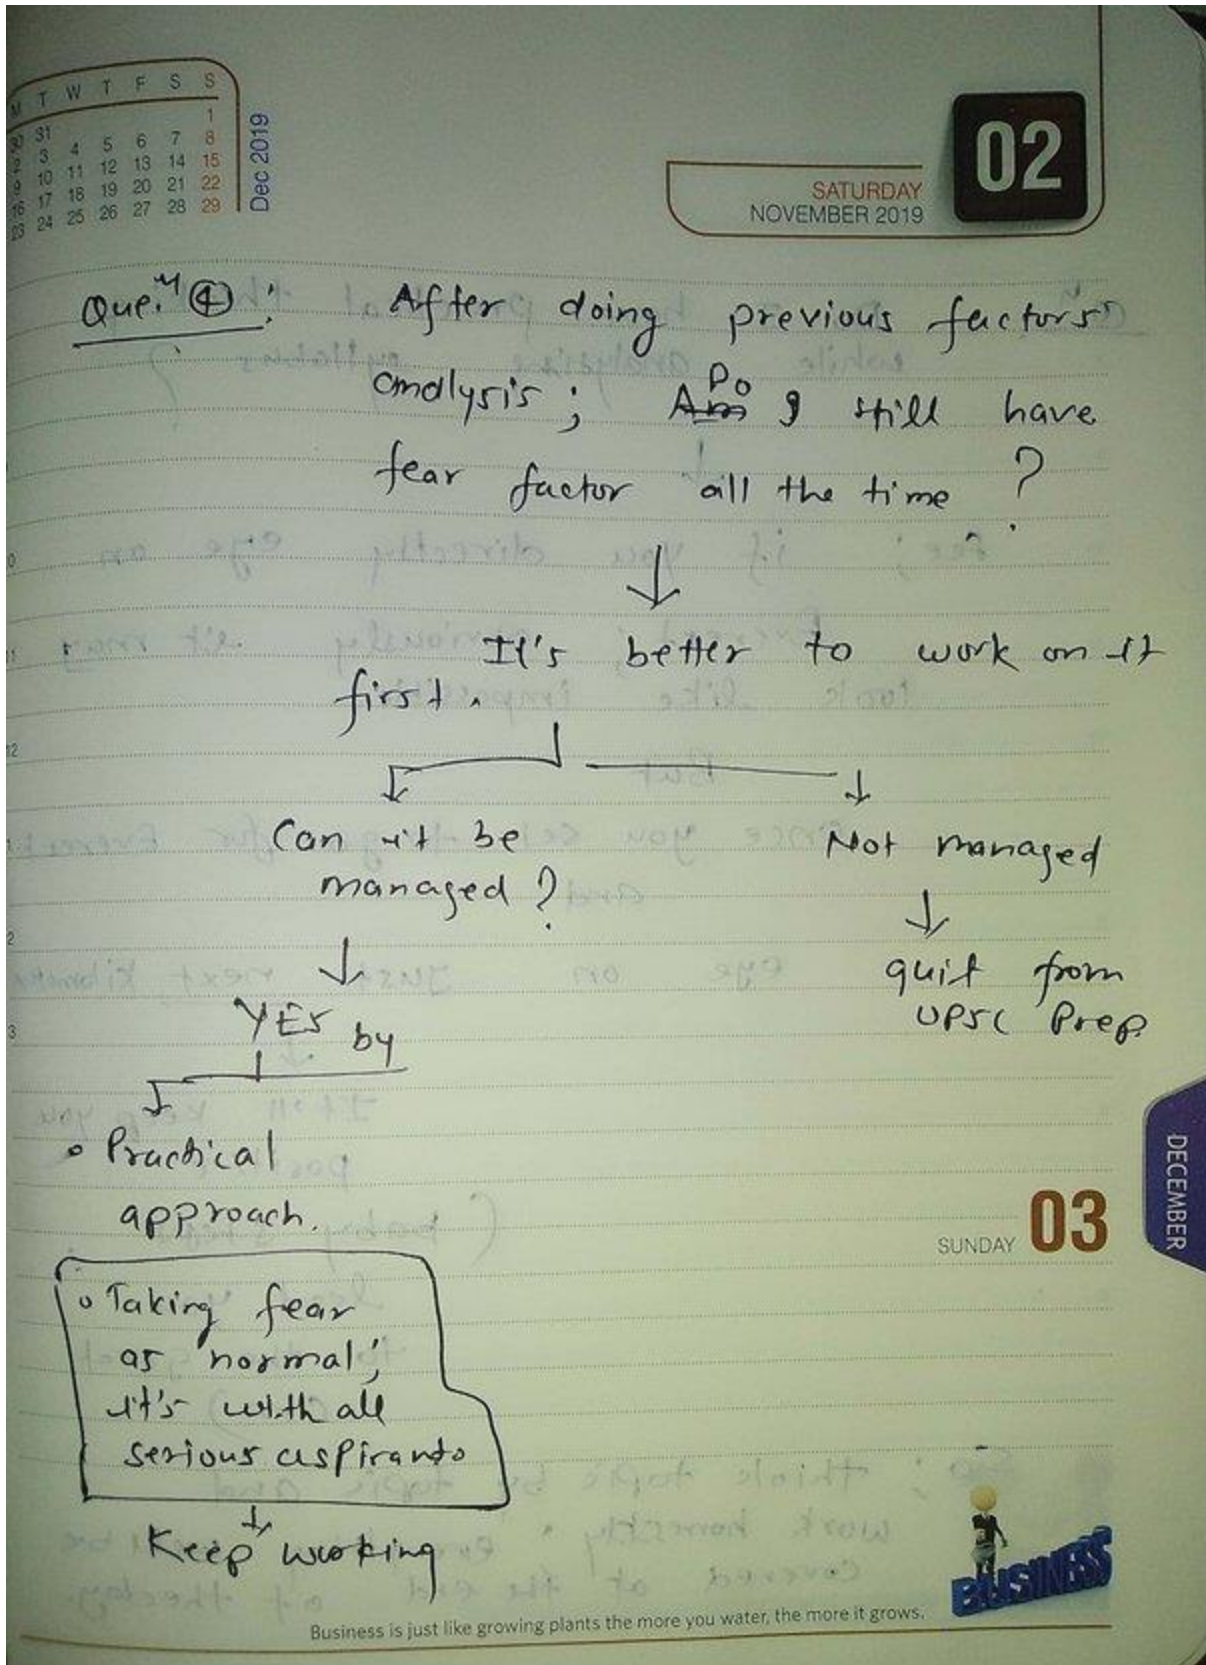 M T W T F S S
30 31 1
2 3 4 5 6 7 8
9 10 11 12 13 14 15
16 17 18 19 20 21 22
23 24 25 26 27 28 29
Dec 2019
02
SATURDAY
NOVEMBER 2019
Que.ⁿ ④ : After doing previous factors
analysis ; Am Do I still have
fear factor all the time ?
↓
It's better to work on it
first.
Can it be
managed ?
↓
YES by
• Practical
approach.
• Taking fear
as normal ;
it's with all
serious aspirants
↓
Keep working
↓
Not managed
↓
quit from
UPSC Prep.
DECEMBER
SUNDAY 03
BUSINESS
Business is just like growing plants the more you water, the more it grows.